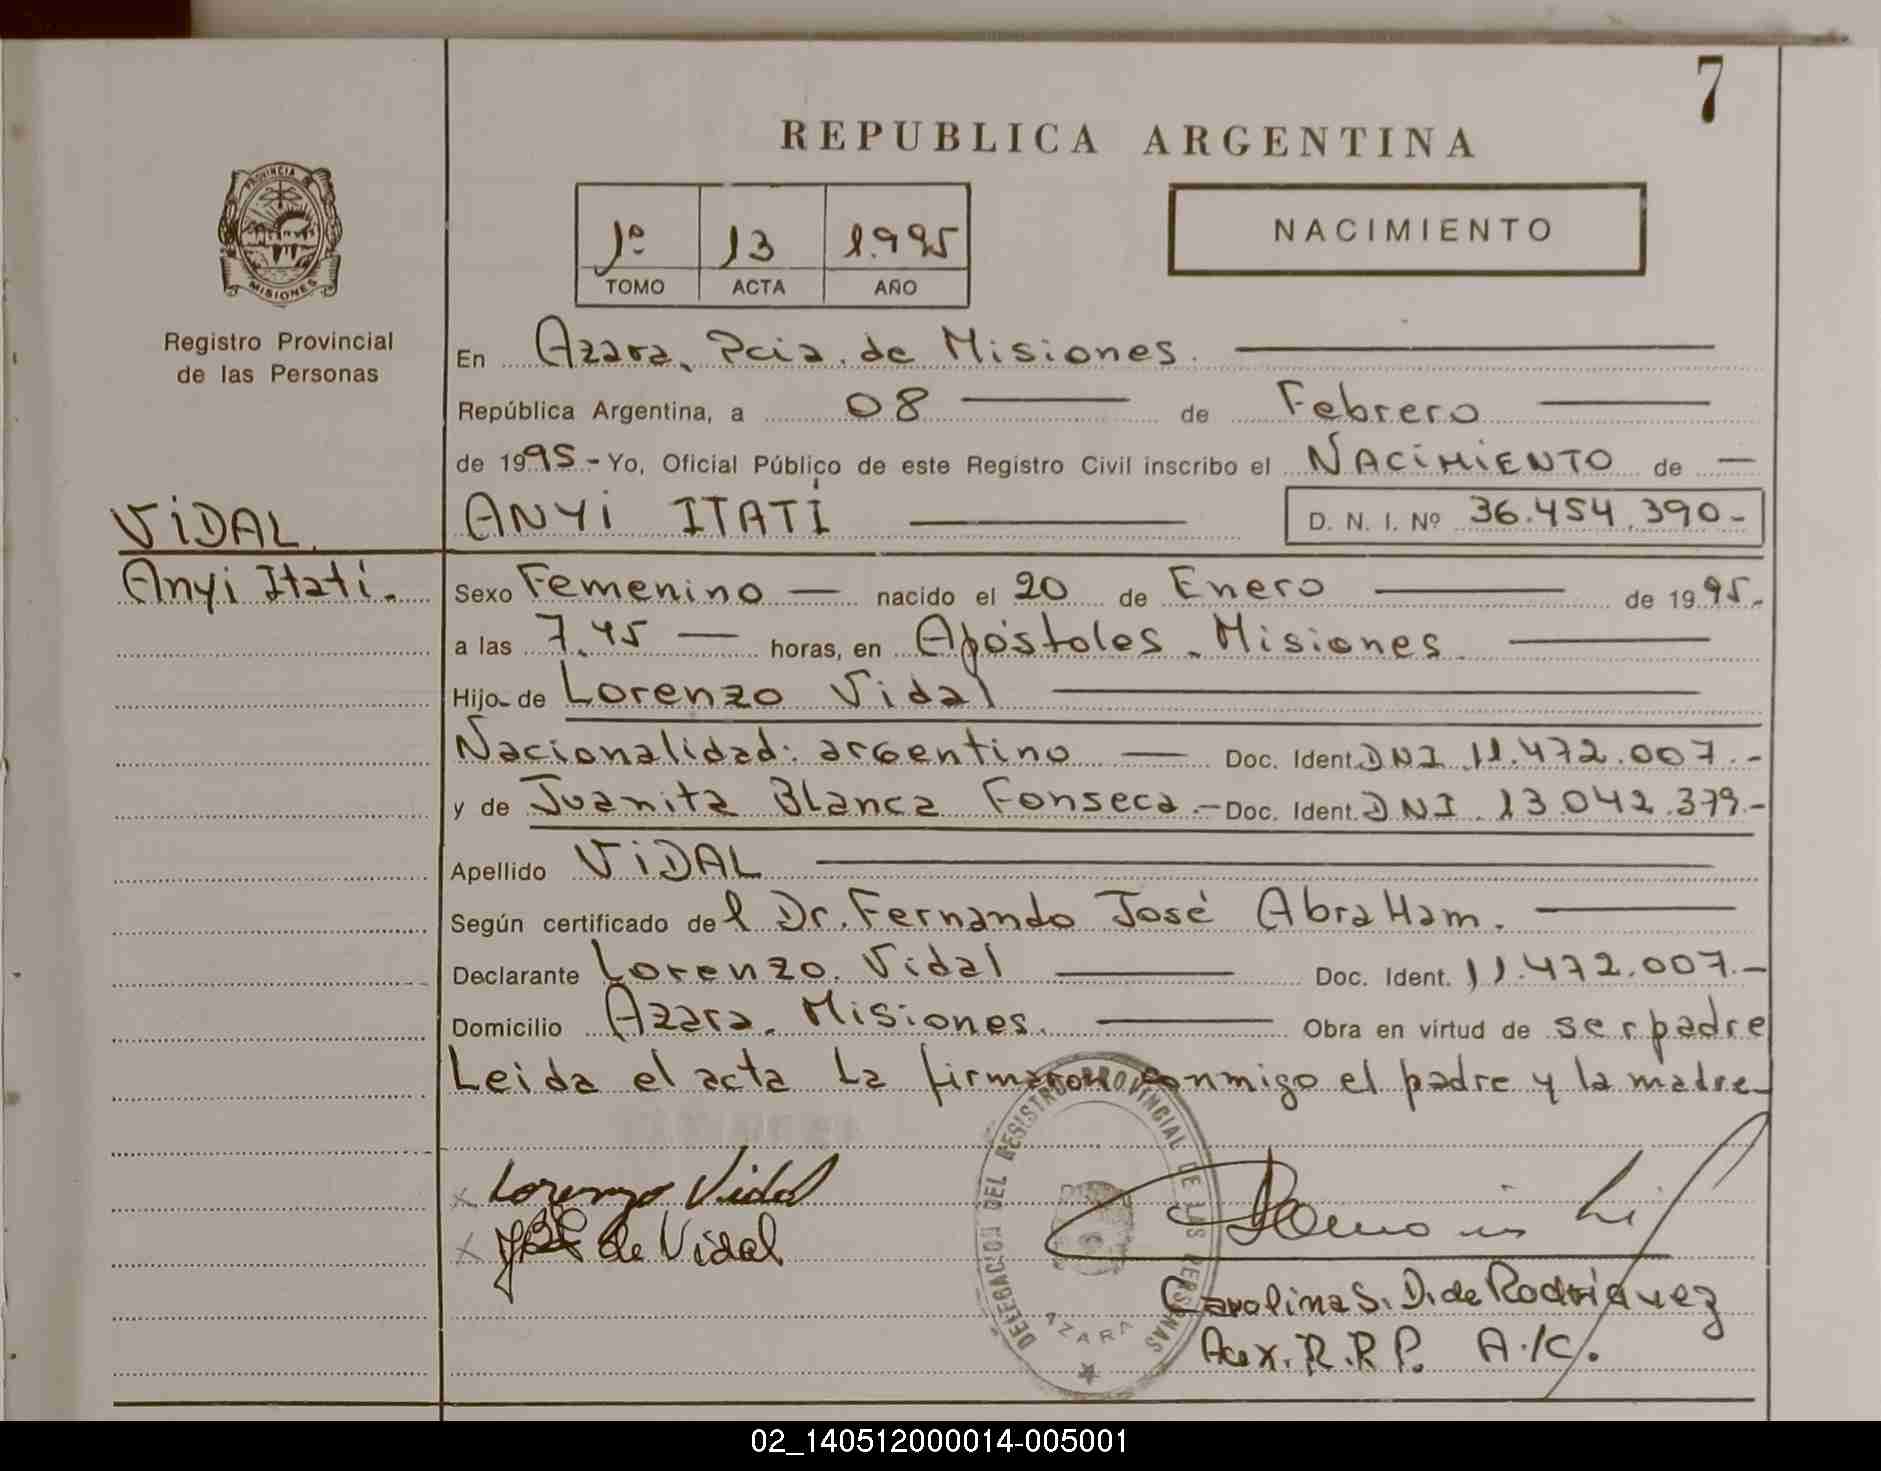 7
REPUBLICA ARGENTINA
PROVINCIA DE
MISIONES
1º 13 1.995
TOMO ACTA AÑO
NACIMIENTO
Registro Provincial
de las Personas
En Azara, Pcia. de Misiones.
República Argentina, a 08 de Febrero
de 1995.- Yo, Oficial Público de este Registro Civil inscribo el NACIMIENTO de —
VIDAL ANYI ITATÍ D. N. I. Nº 36.454.390-
Anyi Itatí. Sexo Femenino — nacido el 20 de Enero de 1995.
a las 7.45 — horas, en Apóstoles. Misiones
Hijo de Lorenzo Vidal
Nacionalidad: argentino — Doc. Ident. DNI 11.472.007.-
y de Juanita Blanca Fonseca.- Doc. Ident. DNI 13.042.379.-
Apellido VIDAL
Según certificado del Dr. Fernando José AbraHam.
Declarante Lorenzo Vidal Doc. Ident. 11.472.007.-
Domicilio Azara. Misiones. Obra en virtud de ser padre
Leida el acta la firmaron conmigo el padre y la madre
DELEGACION DEL REGISTRO PROVINCIAL DE LAS PERSONAS
AZARA
x Lorenzo Vidal
x de Vidal
Carolina S. D. de Rodriguez
Aux. R.R.P. A.K.
02_140512000014-005001